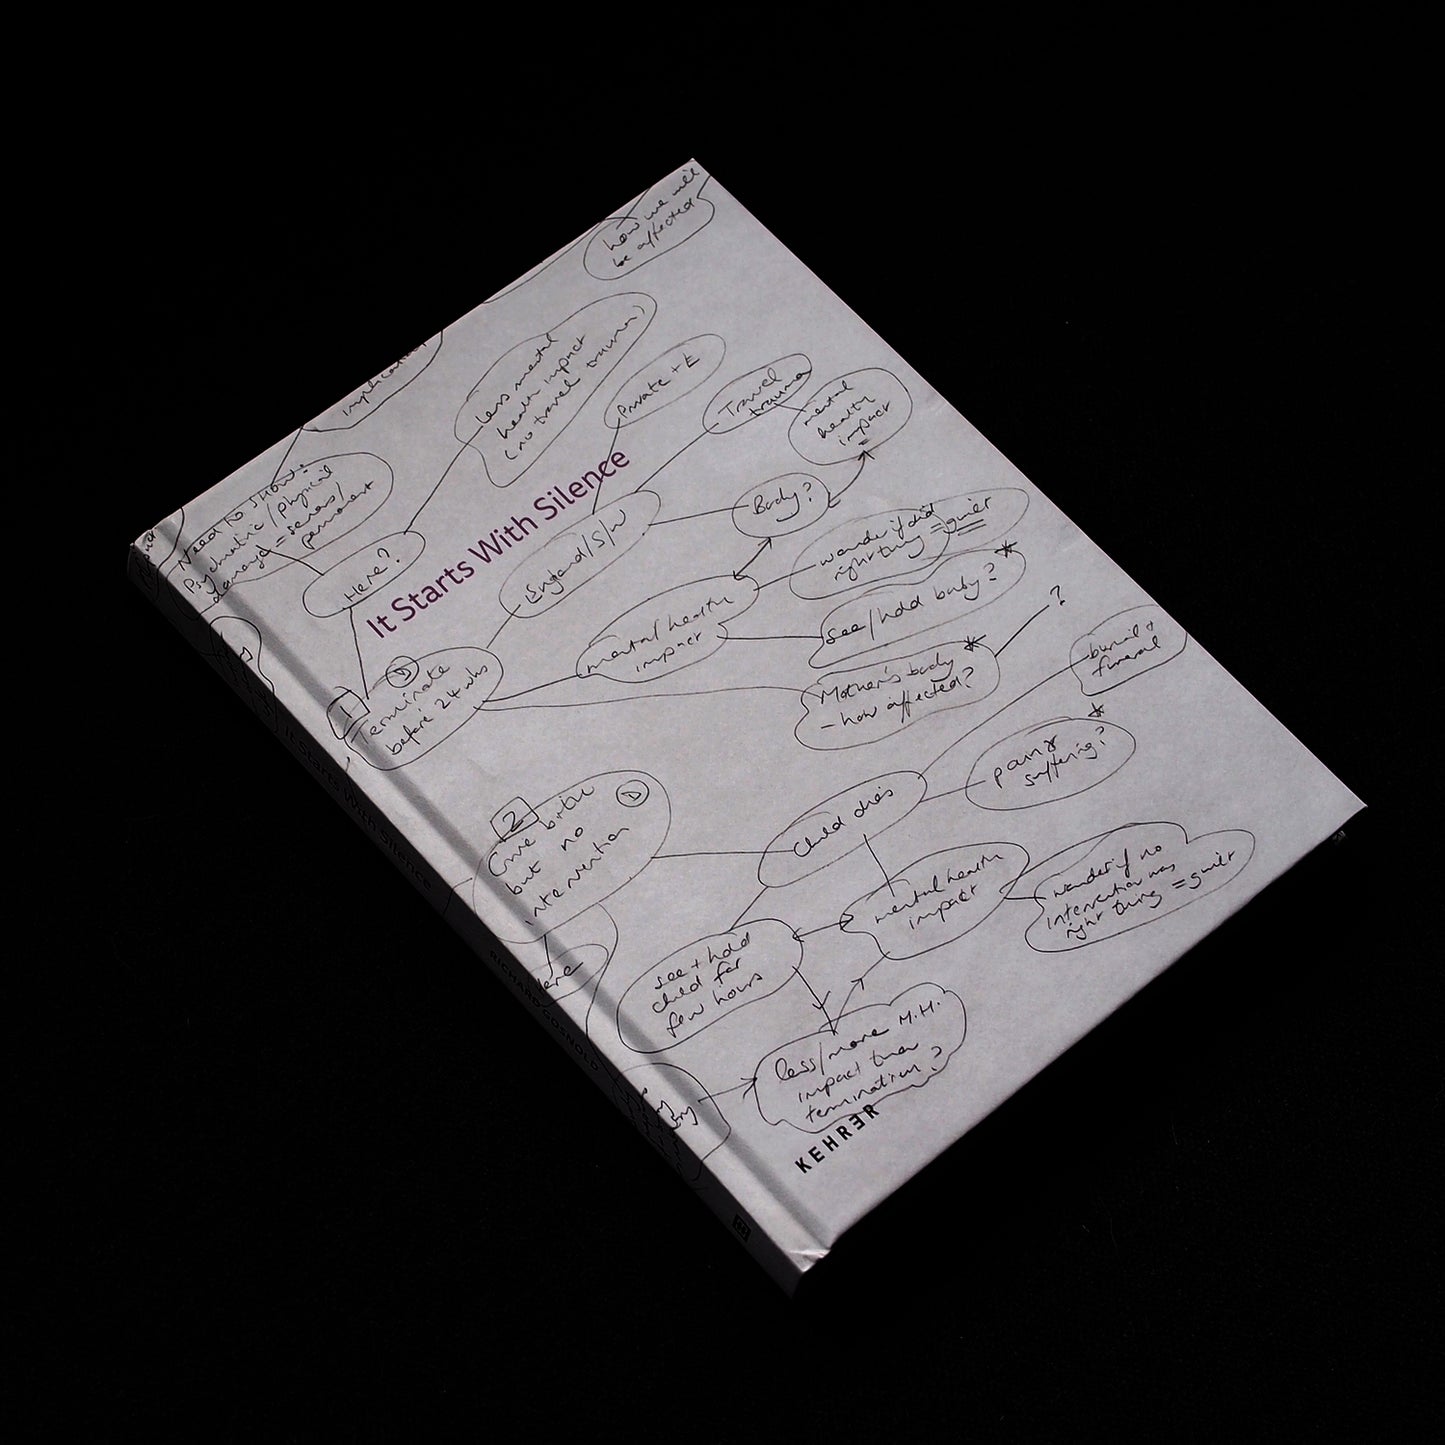 how we will
be affected
implication
less mental
health impact
(no travel trauma)
Private + E
Travel
trauma
mental
health
impact
=
Need to show:
Psychiatric/physical
damage = serious/
permanent
Here?
It Starts With Silence
England/S/W
Body?
wonder if did
right thing = guilt
mental health
impact
see/hold baby?
?
Mother's body
- how affected?
burial +
funeral
1
D
Terminate
before 24 wks
pain &
suffering?
2
D
Give birth
but no
intervention
Child dies
mental health
impact
wonder if no
intervention was
right thing = guilt
see + hold
child for
few hours
Here
less/more M.H.
impact than
termination?
KEHRER
It Starts With Silence
RICHARD GOSNOLD